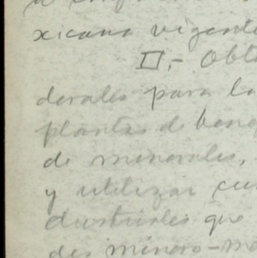 xicana vigente
II.- Obte
derales para la
plantas de bene
de minerales,
y utilizar cu
dustriales que
des minero-me